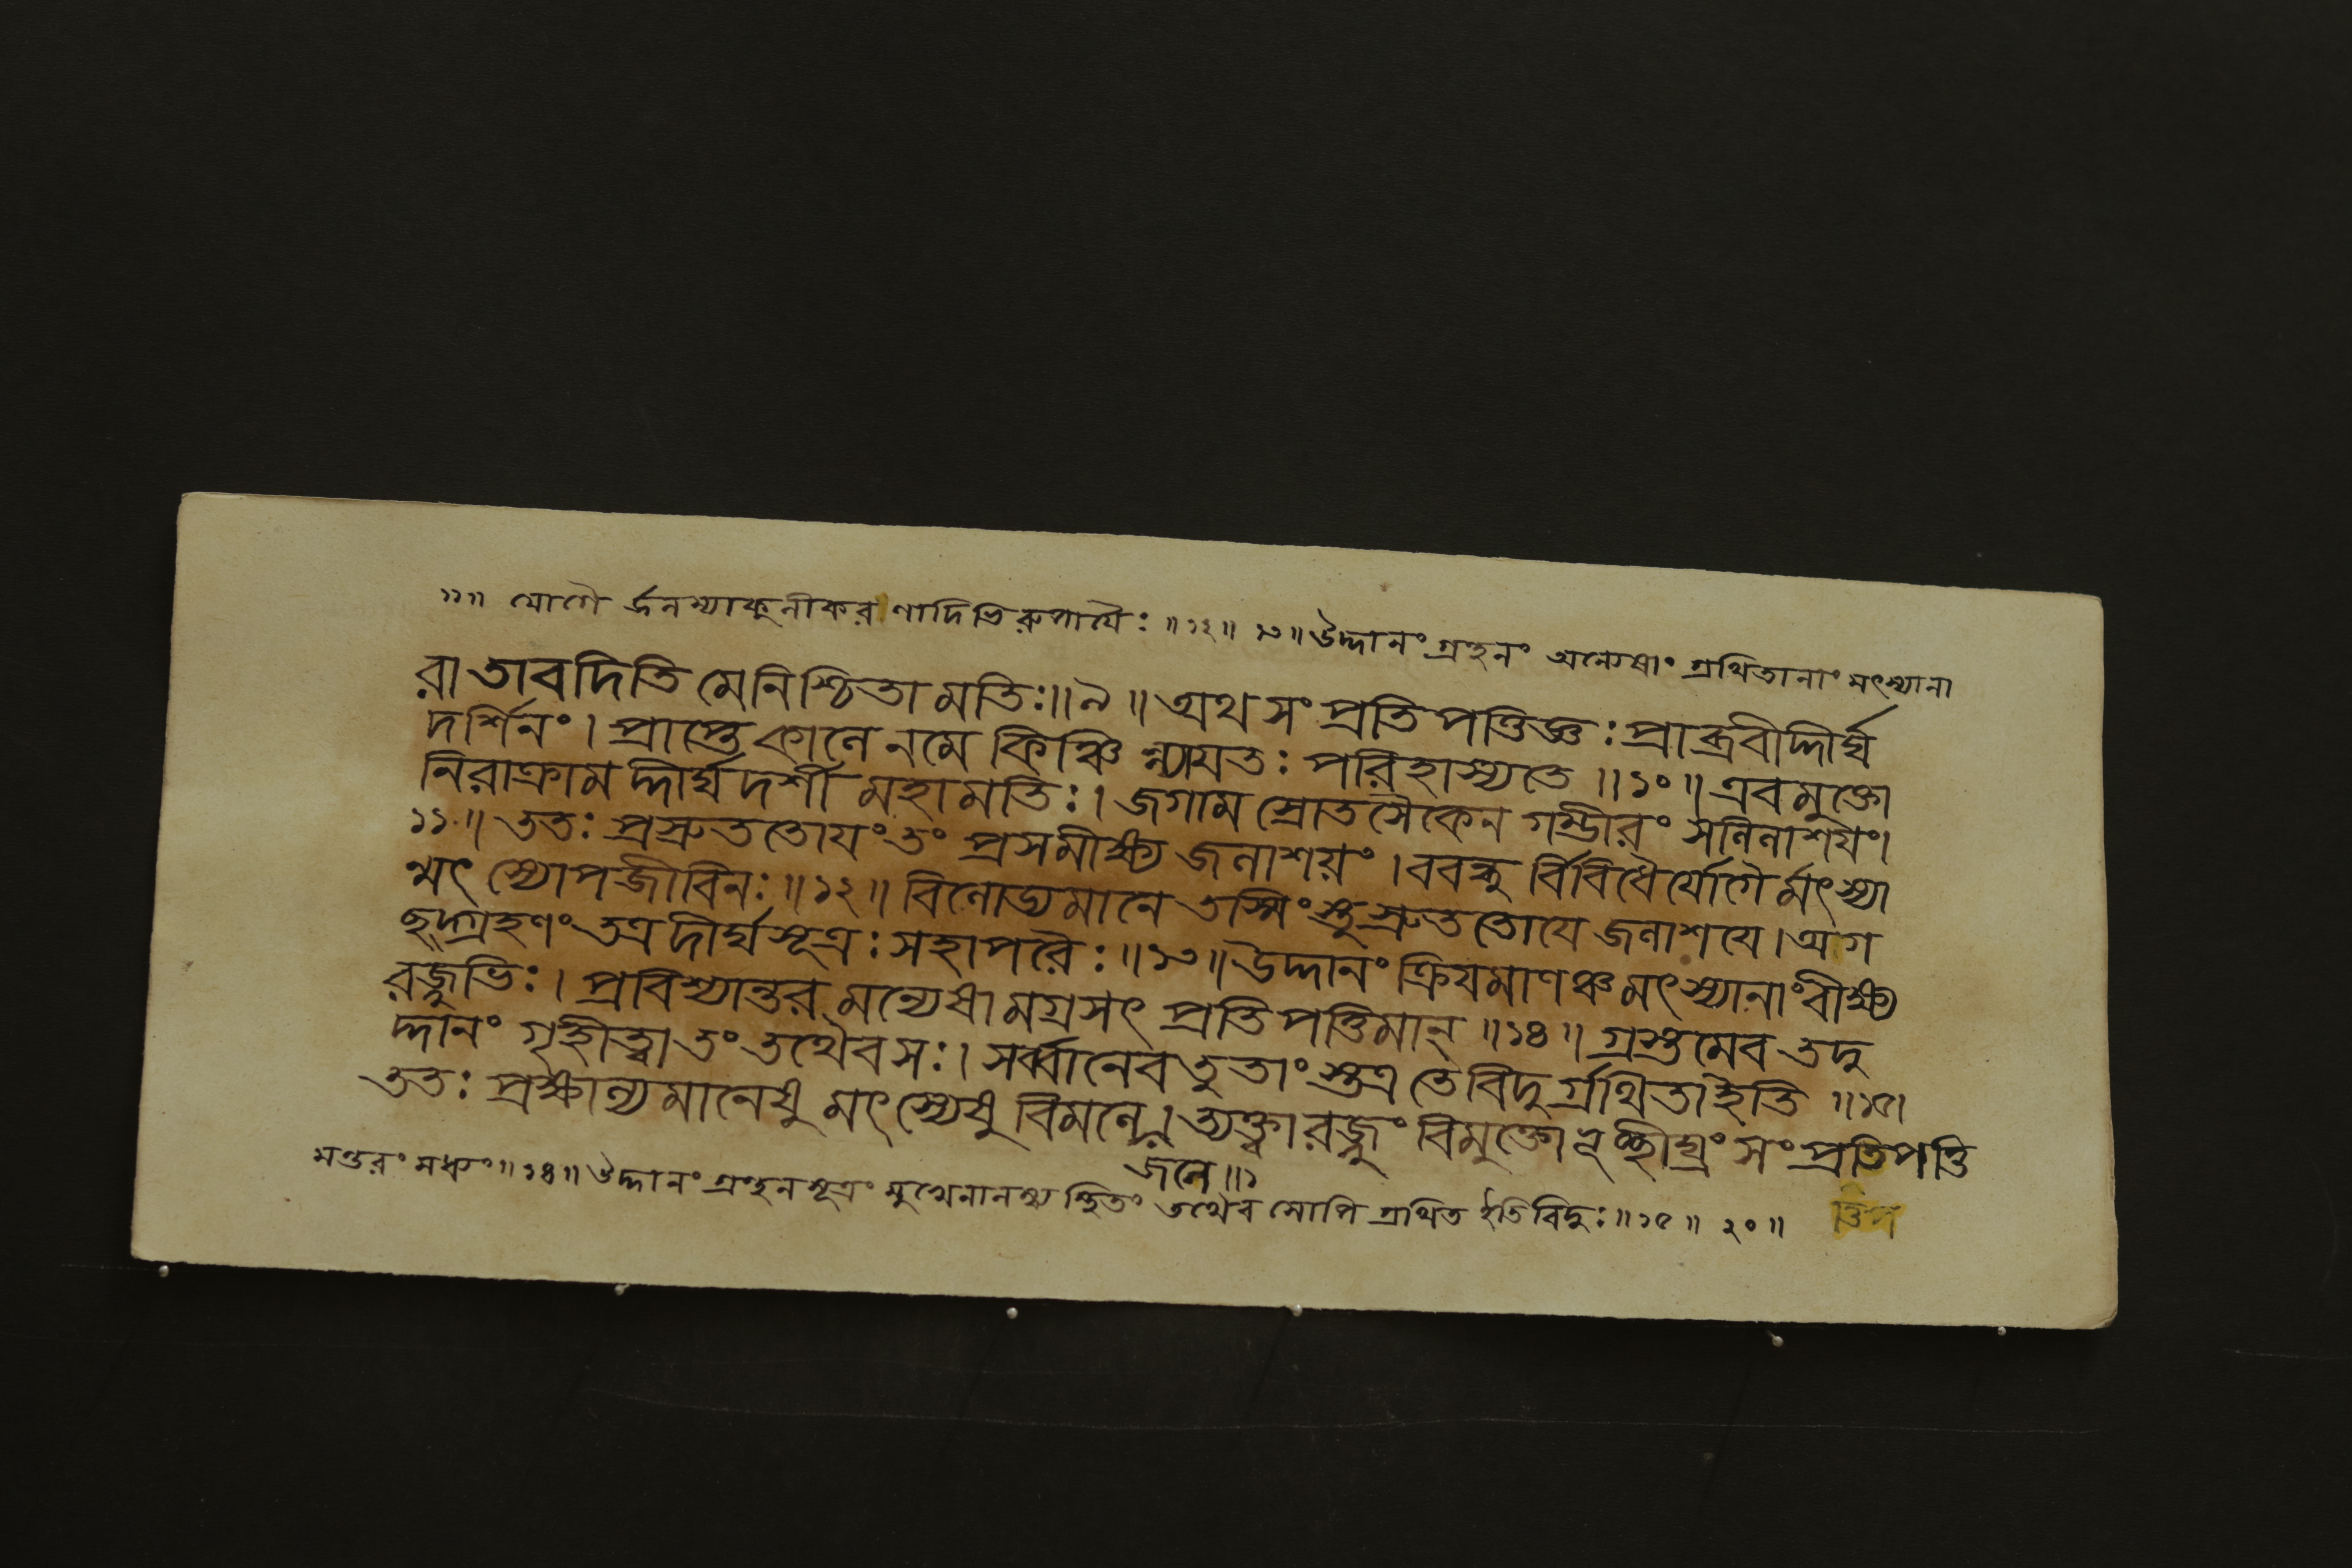 ১১॥ যোগৈ র্জলস্যাকুলীকরণাদিভিরুপাযৈঃ॥১২॥ ১৩॥ উদ্দানং গ্রহনং অন্যেষাং গ্রথিতানাং মৎস্যানা
রা তাবদিতি মে নিশ্চিতা মতিঃ॥৯॥ অথ সংপ্রতিপত্তিজ্ঞঃ প্রাব্রবীদ্দীর্ঘ
দর্শিনং। প্রাপ্তে কালে ন মে কিঞ্চি ন্ন্যাযতঃ পরিহাস্যতে॥১০॥ এবমুক্তো
নিরাক্রামদ্দীর্ঘদর্শী মহামতিঃ। জগাম স্রোতসৈকেন গম্ভীরং সলিলাশযং।
১১॥ ততঃ প্রস্রুততোযং তং প্রসমীক্ষ্য জলাশয়ং। ববন্ধু র্বিবিধৈর্যোগৈ র্মৎস্যা
ন্মৎস্যোপজীবিনঃ॥১২॥ বিলোড্যমানে তস্মিংস্তু স্রুততোযে জলাশযে। অগ
ছদ্গ্রহণং তত্র দীর্ঘসূত্রঃ সহাপরৈঃ॥১৩॥ উদ্দানং ক্রিযমাণঞ্চ মৎস্যানাং বীক্ষ্য
রজ্জুভিঃ। প্রবিশ্যান্তরমন্যেষামগ্রসৎ প্রতিপত্তিমান্॥১৪॥ গ্রস্তমেব তদু
দ্দানং গৃহীত্বা তং তথৈব সঃ। সর্ব্বানেব তু তাংস্তত্র তে বিদুর্গ্রথিতা ইতি॥১৫।
ততঃ প্রক্ষাল্যমানেষু মৎস্যেষু বিমলে। ত্যক্ত্বা রজ্জুং বিমুক্তোঽভূচ্ছীঘ্রং সংপ্রতিপত্তি
জলে॥১
মন্তরং মধ্যং॥১৪॥ উদ্দানং গ্রহনসূত্রং মুখেনালম্ব্য স্থিতং তথৈব সোপি গ্রথিত ইতি বিদুঃ॥১৫॥ ২০॥